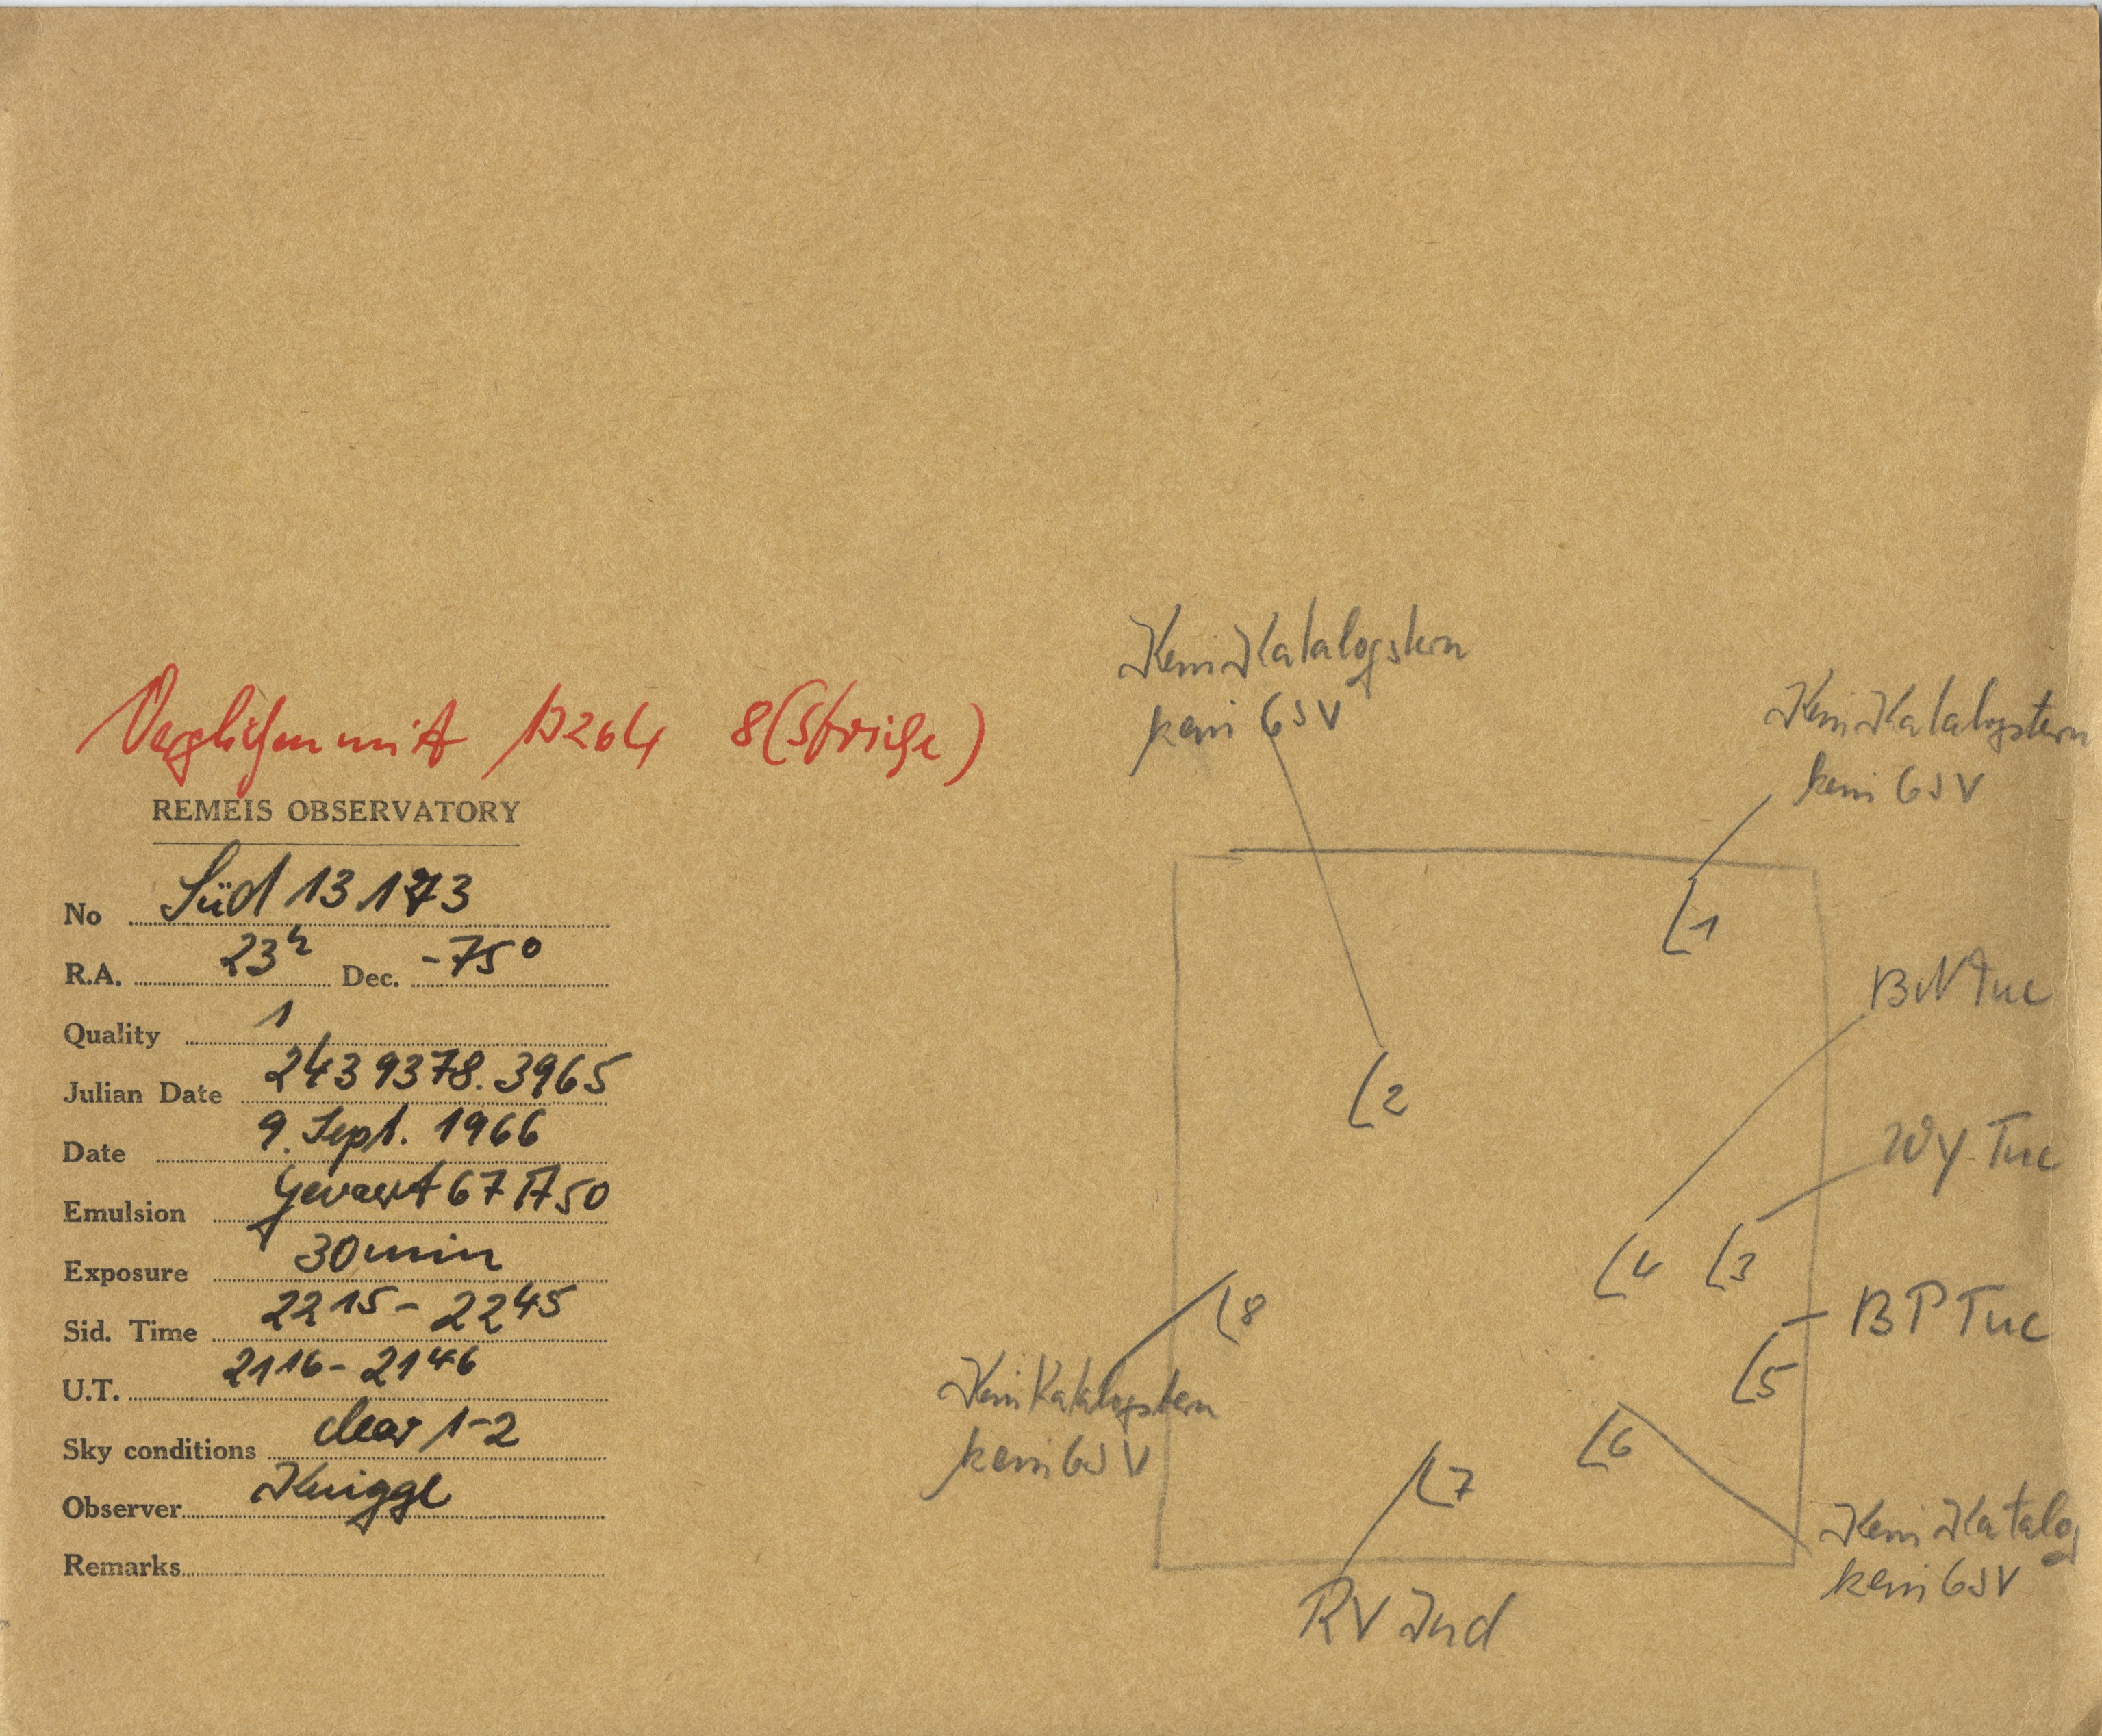 Verglichen mit 13264 8 (Striche)
REMEIS OBSERVATORY
No Süd 13 173
R.A. 23h Dec. -75°
Quality 1
Julian Date 2439378.3965
Date 9. Sept. 1966
Emulsion Gevaert 67 A 50
Exposure 30min
Sid. Time 22 15 - 22 45
U.T. 21 16 - 21 46
Sky conditions clear 1-2
Observer Knigge
Remarks
Kein Katalogstern
kein GSV
Kein Katalogstern
kein GSV
1
BN Tuc
2
WY Tuc
4 3
8
BP Tuc
5
Kein Katalogstern
kein GSV
6
7
Kein Katalog
kein GSV
RV Ind